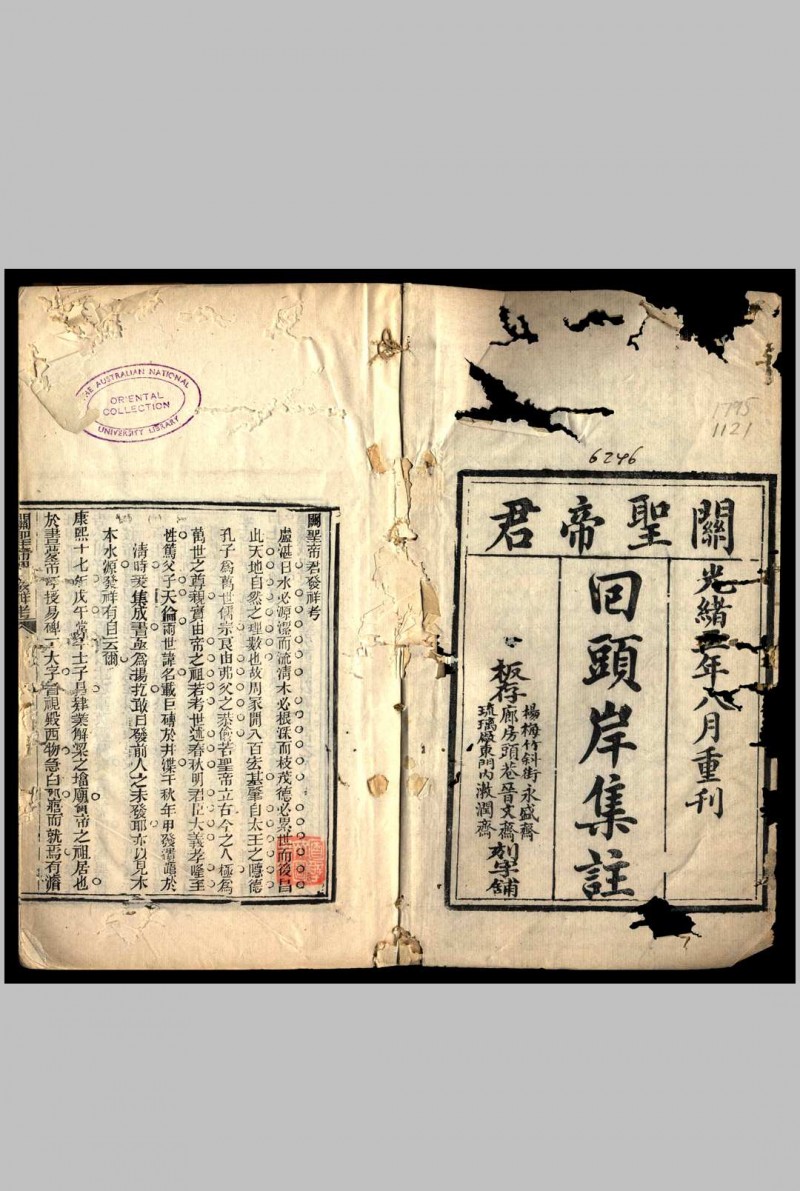 關聖帝君
光緒年八月重刊
回頭岸集註
楊梅竹斜街永盛齋
板存廊房頭巷晉文齋刻字舖
琉璃廠東門內漱潤齋
6246
1795
1121
THE AUSTRALIAN NATIONAL
ORIENTAL
COLLECTION
UNIVERSITY LIBRARY
關聖帝君發祥考
盧湛曰水必源潔而流清木必根深而枝茂德必累世而後昌
此天地自然之理數也故周家開八百宏基肇自太王之隱德
孔子為萬世儒宗良由弗父之恭儉若聖帝立古今之人極為
萬世之尊親實由帝之祖若考世述春秋明君臣大義孝隆至
性篤父子天倫兩世諱名載巨磚於井渫千秋年甲發潛于
清時爰集成書亟為揚扢敢曰發前人之未發耶亦以見木
本水源發祥有自云爾
康熙十七年戊午士子昌肄業解梁之塔廟實帝之祖居也
於晝夢帝呼授易碑二大字督視殿西物急白郡寤而就焉有濬